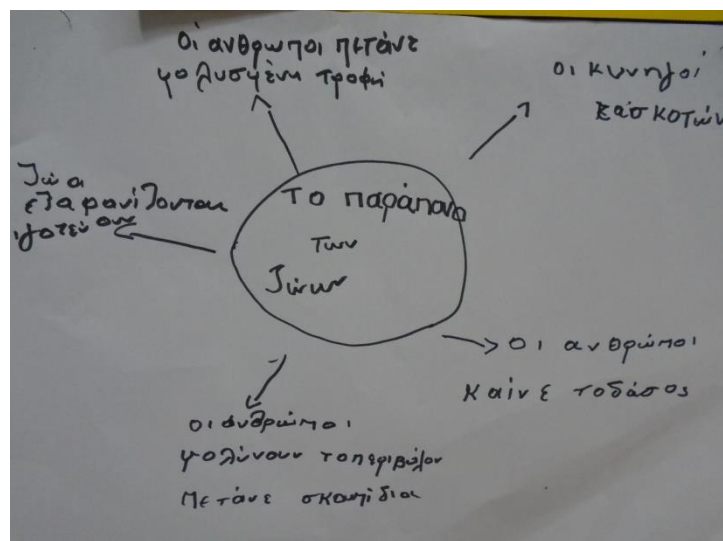 Οι ανθρωποι πετάνε
μολυσμένη τροφή
οι κυνηγοί
σκοτών
Ζώα
εξαφανίζονται
Το παράπονο
των
Ζώων
Οι ανθρώποι
Καίνε τοδάσος
οι ανθρώποι
μολύνουν τοπεριβάλον
Πετάνε σκουπίδια